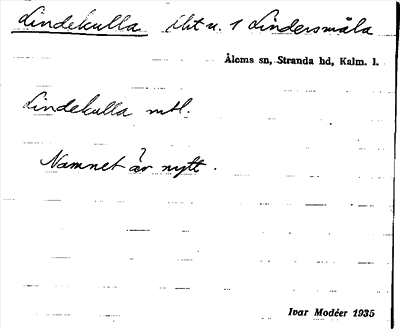 Lindekulla lht u. 1 Lindersmåla
Ålems sn, Stranda hd, Kalm. l.
Lindekulla mtl.
Namnet är nytt.
?
Ivar Modéer 1935